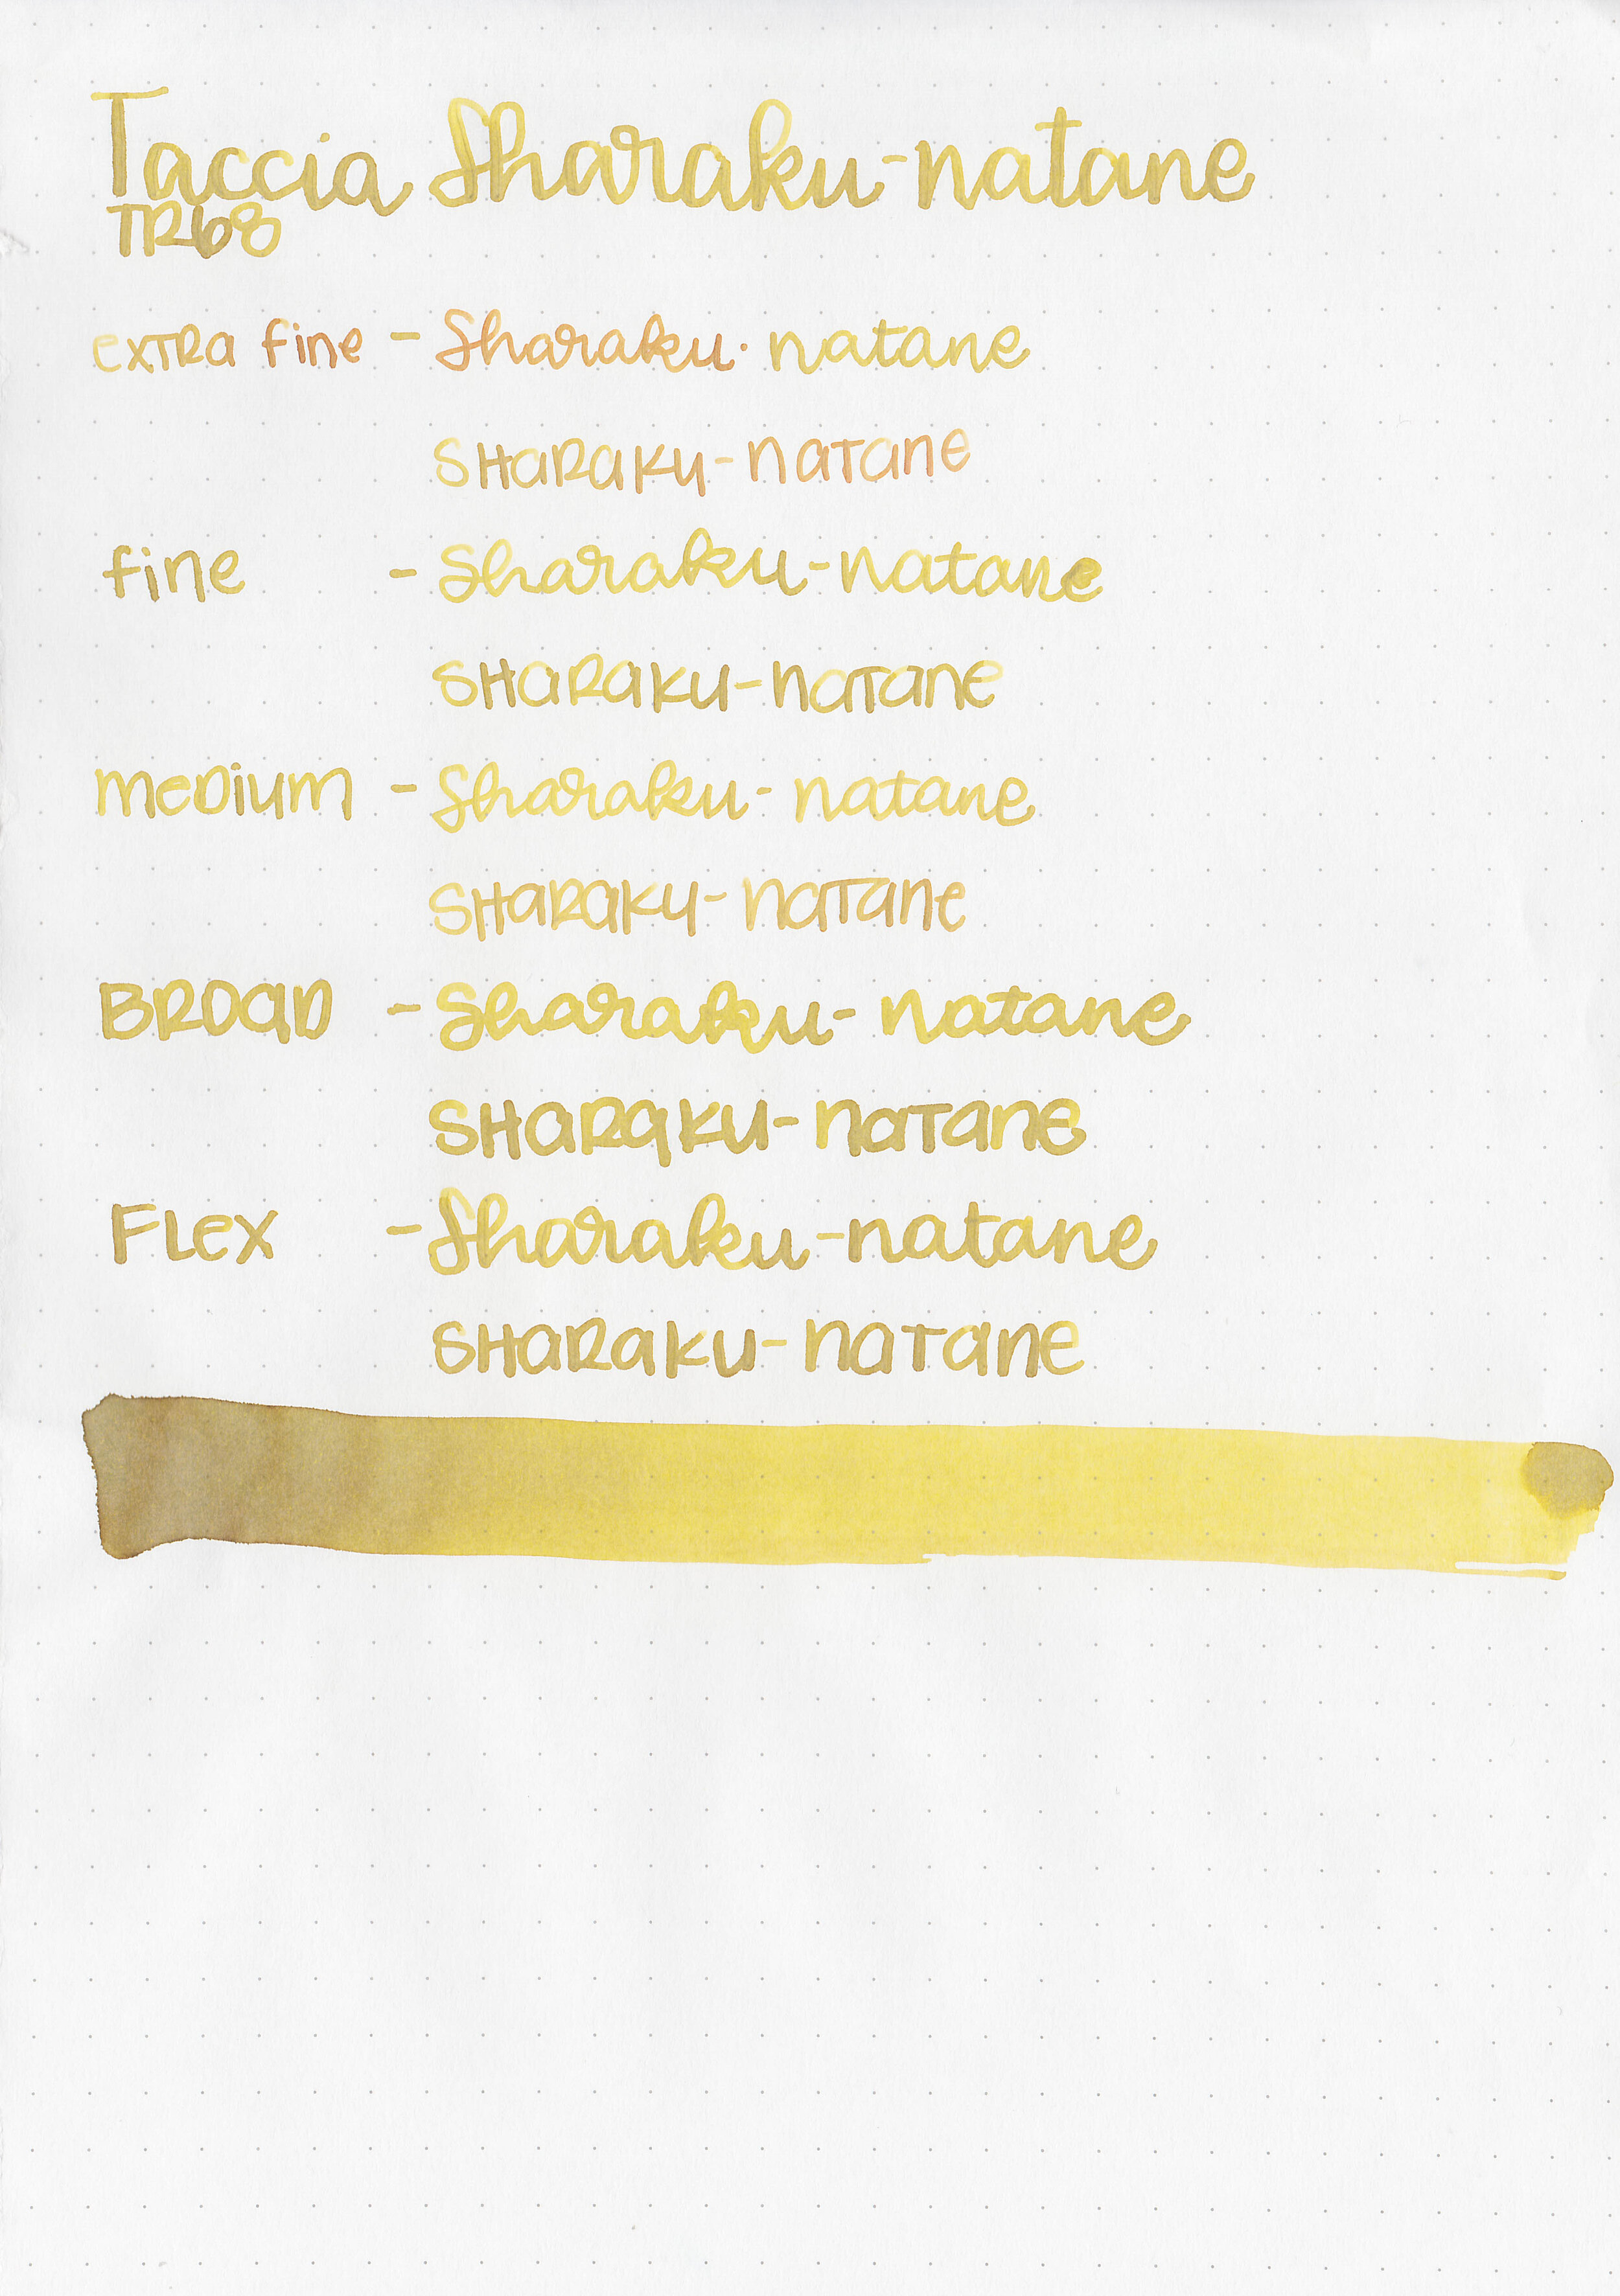 Taccia Sharaku-natane
TR68
extra fine - Sharaku-natane
SHaRaKu-natane
fine - Sharaku-natane
SHaRaKu-natane
meDium - Sharaku-natane
SHaRaKu-natane
BROaD - Sharaku-natane
SHaRaKu-natane
FLex - Sharaku-natane
SHaRaKu-natane